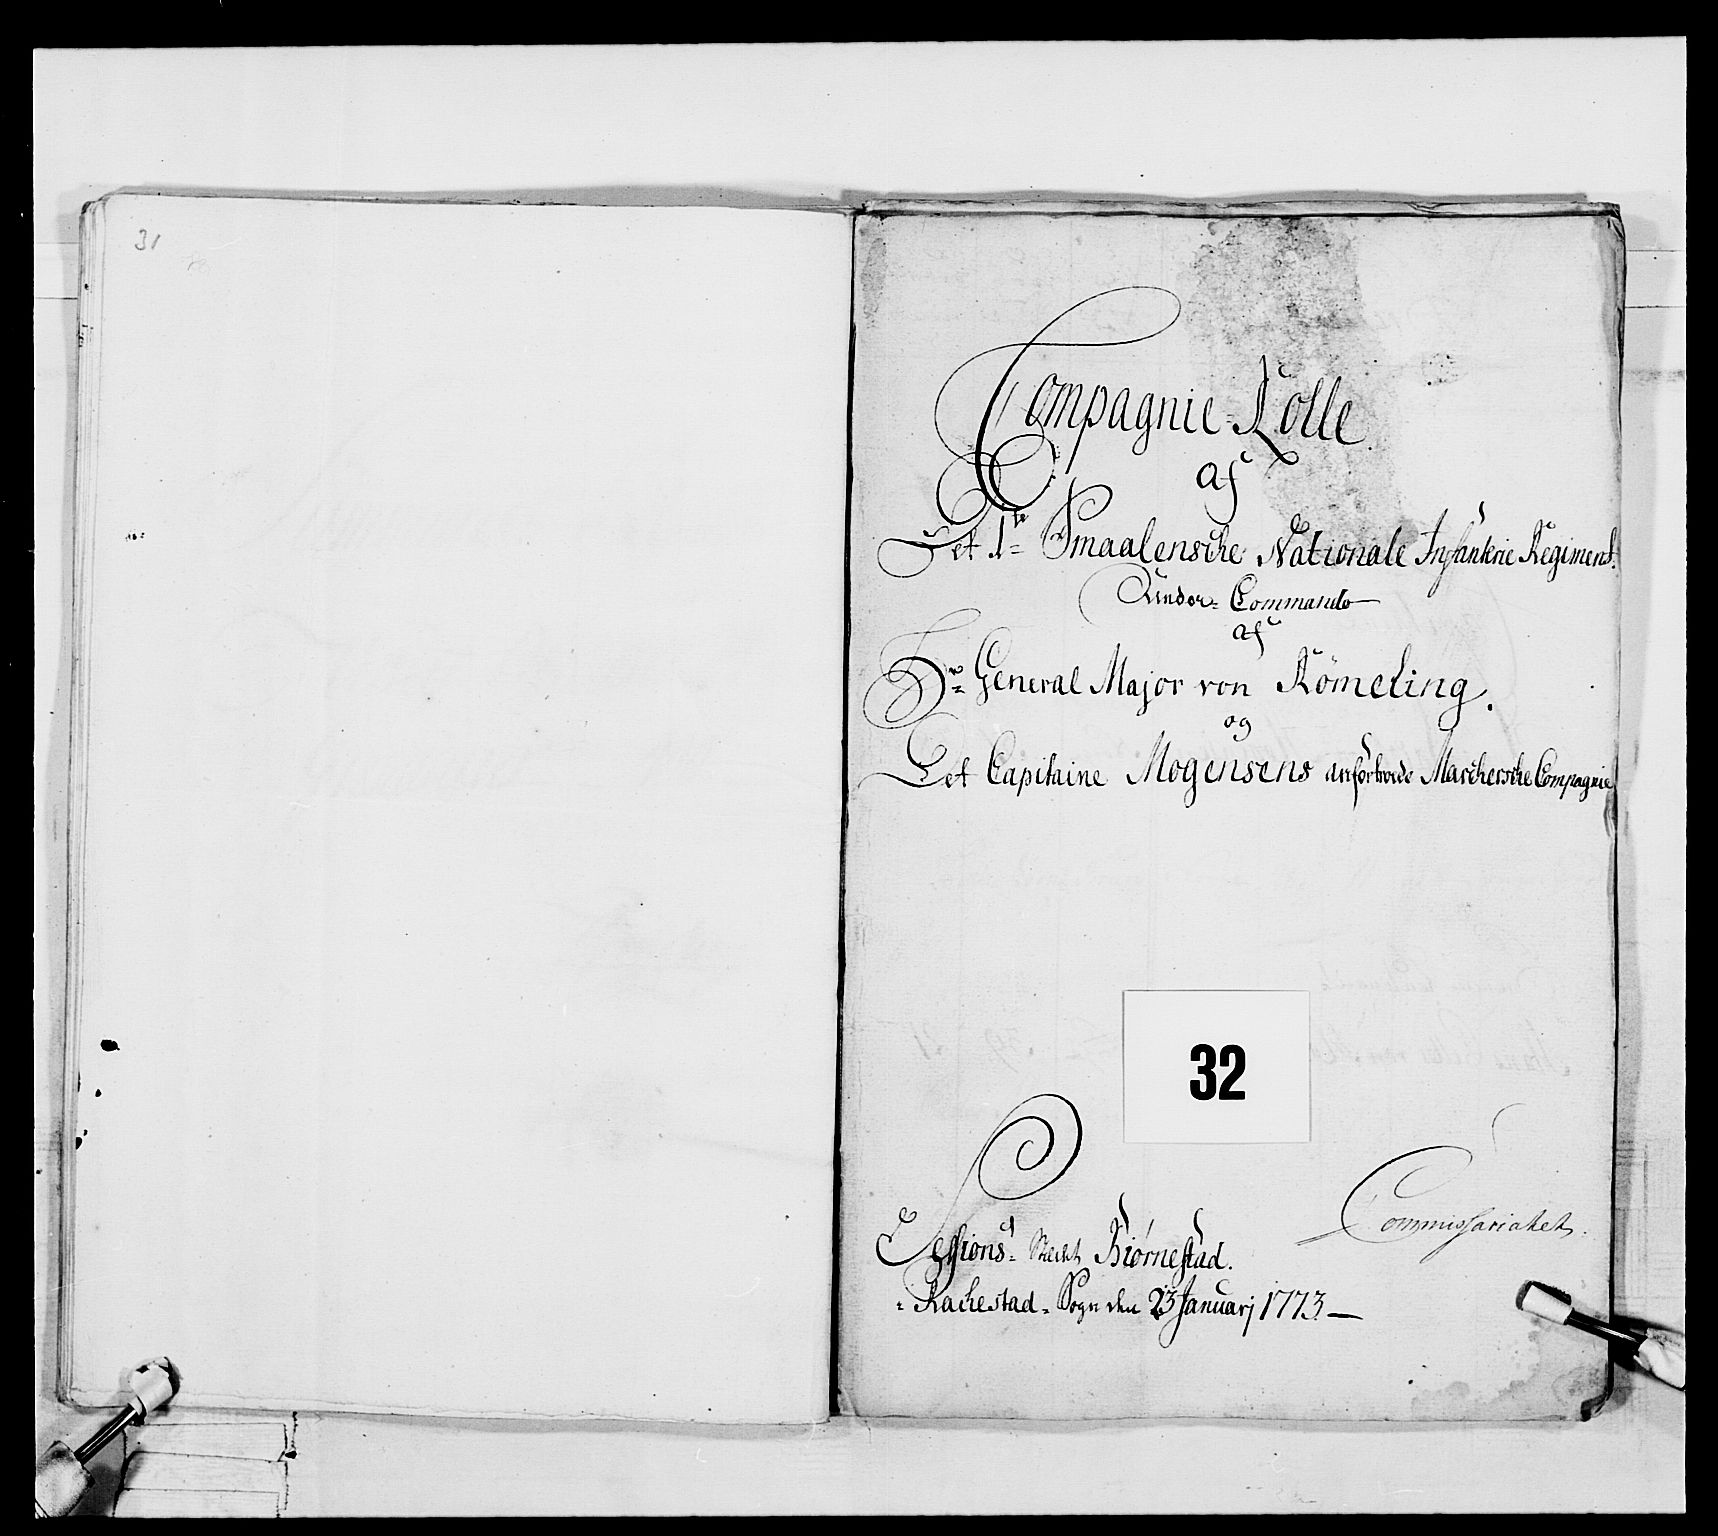 31
Compagnie-Rolle
af
Det 1te Smaalensche Nationale Infanterie Regiment.
Under- Commando
af
Hr General Major von Römeling.
og
Det Capitaine Mogensens anfortroede Marchersche Compagnie
32
Commissariatet.
Sessions- Stædt Biørnestad.
Rachestad- Sogn den 23 Januarj 1773